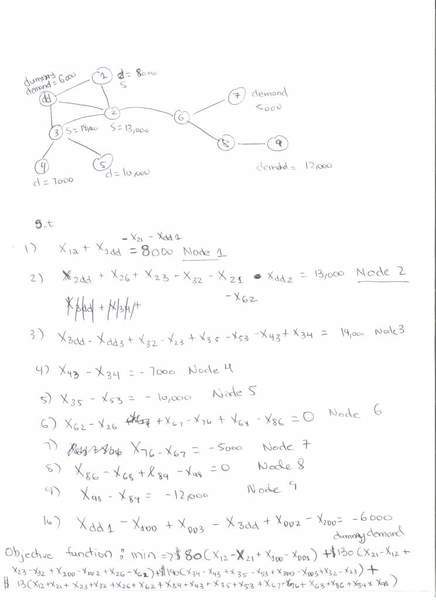 dummy
demand = 6000
dd
1
d = 8000
S
2
S = 13,000
3
S = 14,000
4
d = 7000
5
d = 10,000
6
7
demand
5000
8
9
demand = 12,000
S.t
1) X12 + X1dd - X21 - Xdd1 = 8000 Node 1
2) X2dd + X26 + X23 - X32 - X21 Xdd2 = 13,000 Node 2
- X62
3) X3dd - Xdd3 + X32 - X23 + X35 - X53 - X43 + X34 = 14,000 Node 3
4) X43 - X34 = - 7000 Node 4
5) X35 - X53 = - 10,000 Node 5
6) X62 - X26 + X67 - X76 + X68 - X86 = 0 Node 6
7) X76 - X67 = -5000 Node 7
8) X86 - X68 + X89 - X98 = 0 Node 8
9) X98 - X89 = -12,000 Node 9
10) Xdd1 - X1DD + XDD3 - X3dd + XDD2 - X2DD = -6000
dummy demand
Objective function: min => $80 (X12 - X21 + X1DD - XDD1) + $130 (X21 - X12 +
X23 - X32 + X2DD - XDD2 + X26 - X62) + $140 (X34 - X43 + X35 - X53 + X3DD - XDD3 + X32 - X23) +
$ 13 (X12 + X21 + X23 + X32 + X26 + X62 + X34 + X43 + X35 + X53 + X67 + X76 + X63 + X86 + X89 + X98)